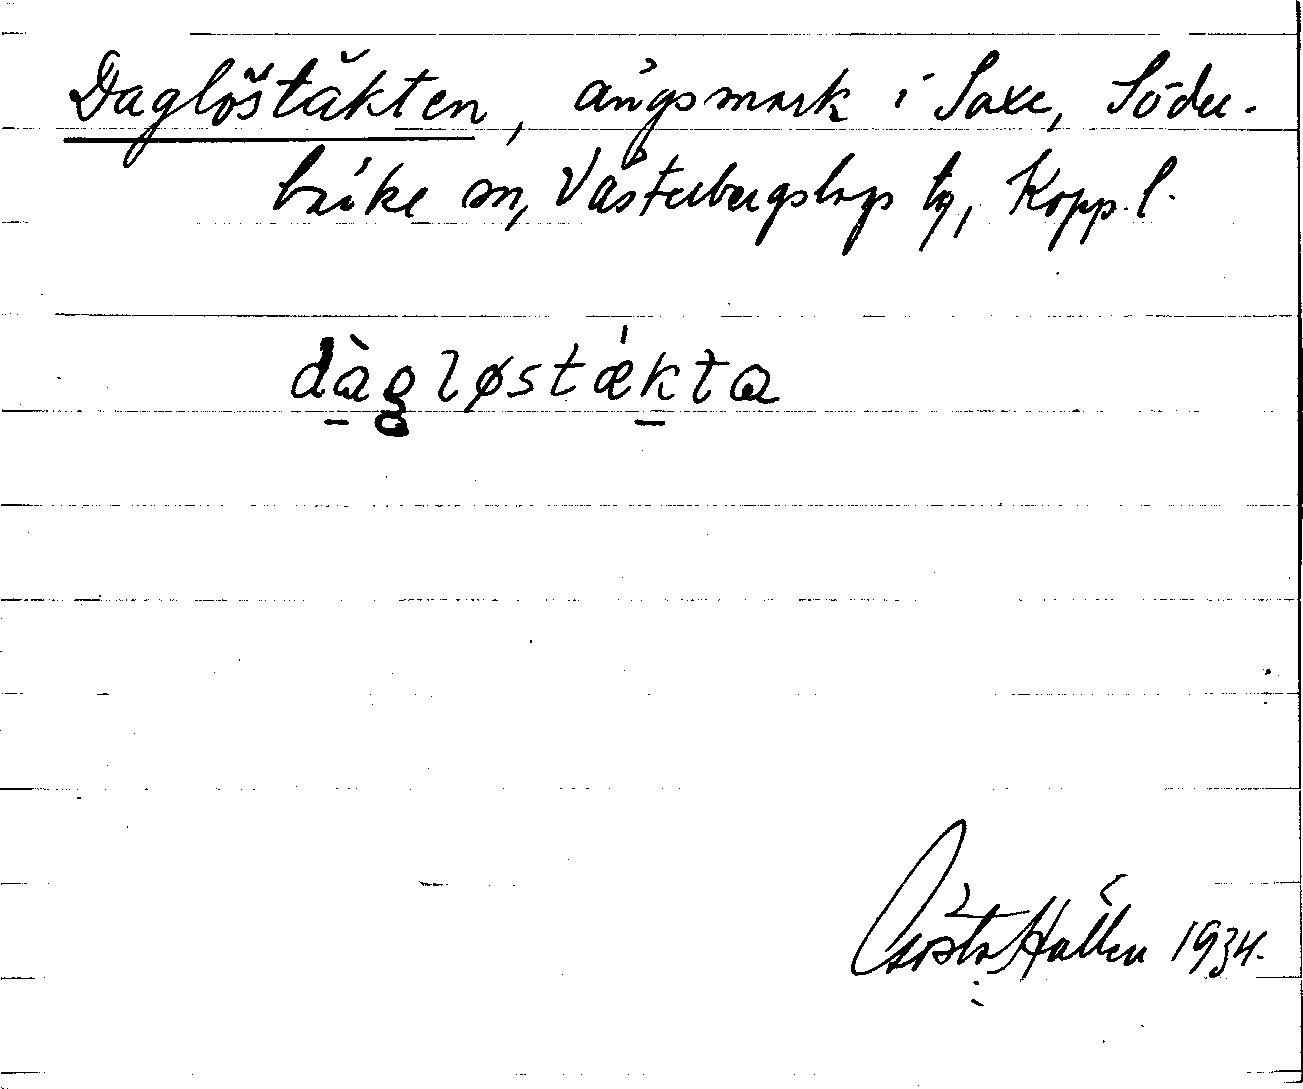 Daglöstäkten, ängsmark i Saxe, Söder-
bärke sn, Västerbergslags tg, Kopp. l.
dàgløstǽkta
Gösta Hallén 1934.